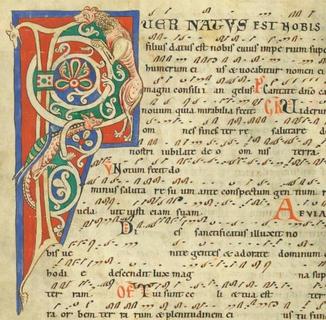 PUER NATUS EST NOBIS
filius datus est nobis cuius impe rium supe
humerum ei us & uocabitur nomen e
magni consilii an gelus Cantate dno ca
nouum quia mirabilia fecit V iderun
om nes fines ter re salutare d
nostri iubilate deo om nis terra
Notum fecit do
minus saluta re su um ante conspectum gen tium
uela uit iusti ciam suam. ALLELVIA
Di es sanctificatus illuxit no
bis ue nite gentes & adorate dominum
hodi e descendit lux mag
ter ram. Of Tui sunt ce li & tua est ter
ra or bem ter ra rum & plenitudinem ei